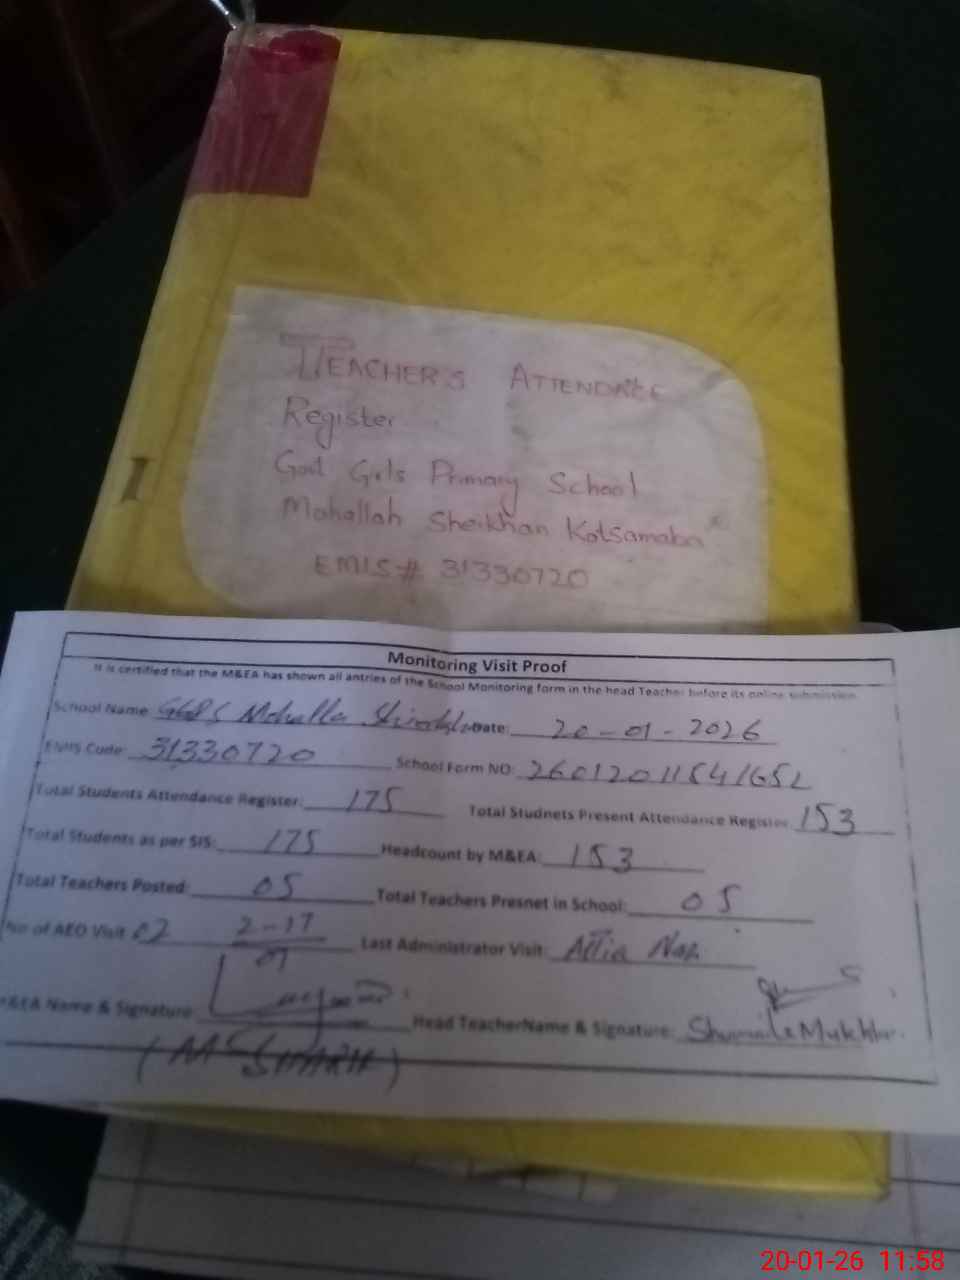 TEACHER'S ATTENDANCE
Register
Govt Girls Primary School
Mohallah Sheikhan Kotsamaba
EMIS# 31330720
Monitoring Visit Proof
It is certified that the M&EA has shown all antries of the School Monitoring form in the head Teacher before its online submission
School Name: GGPS Mohalla Date: 20-01-2026
EMIS Code: 31330720 School Form NO:
Total Students Attendance Register: 175 Total Studnets Present Attendance Register 153
Total Students as per SIS: 175 Headcount by M&EA: 153
Total Teachers Posted: 05 Total Teachers Presnet in School: 05
No of AEO Visit 02 2-17 Last Administrator Visit: Attia
M&EA Name & Signature Head TeacherName & Signature: Shumaila Mukhtar
20-01-26 11:58